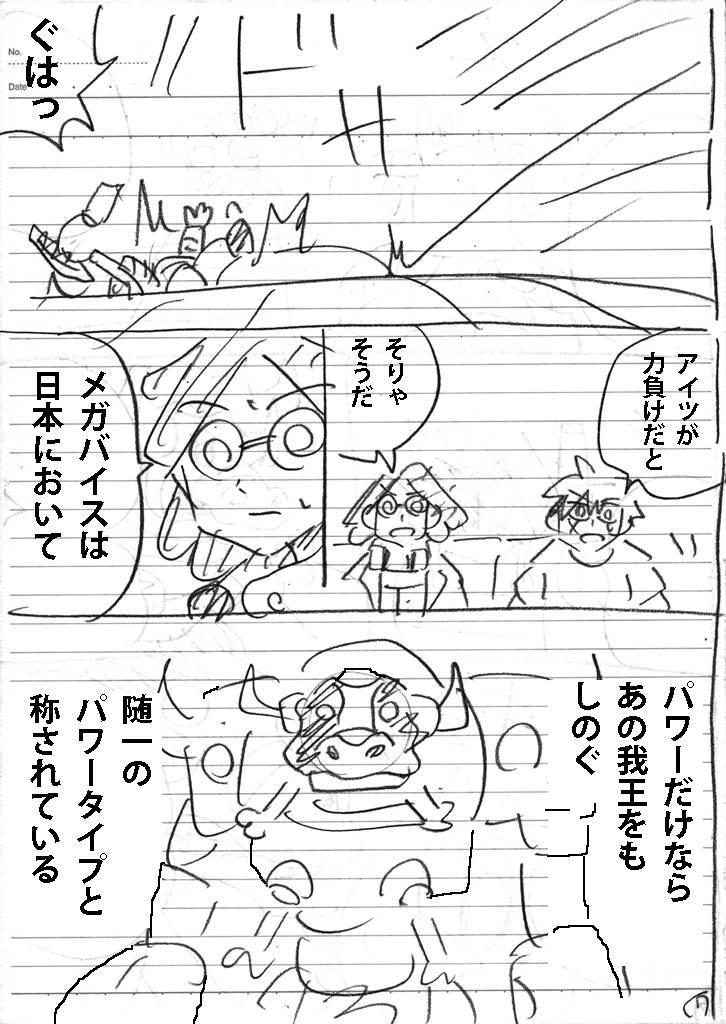 No.
Date
ドドド
ぐはっ
アイツが
力負けだと
そりゃ
そうだ
メガバイスは
日本において
パワーだけなら
あの我王をも
しのぐ
随一の
パワータイプと
称されている